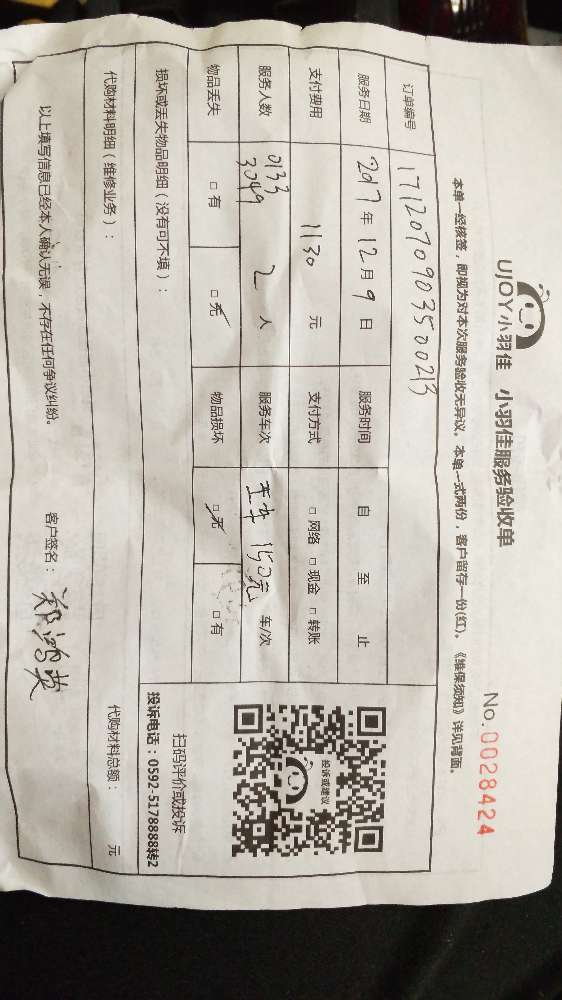 UJOY小羽佳 小羽佳服务验收单
No.0028424
本单一经核签，即视为对本次服务验收无异议。本单一式两份，客户留存一份(红)。《维保须知》详见背面。
订单编号 1712070903500213
服务日期 2017年12月9日 服务时间 自 至 止
支付费用 1130 元 支付方式 □网络 □现金 □转账
服务人数 0133 3049 2人 服务车次 150元 车/次
物品丢失 □有 □无 物品损坏 □无 □有
损坏或丢失物品明细（没有可不填）：
代购材料明细（维修业务）： 代购材料总额： 元
以上填写信息已经本人确认无误，不存在任何争议纠纷。 客户签名：郑鸿英
投诉或建议
扫码评价或投诉
投诉电话：0592-5178888转2